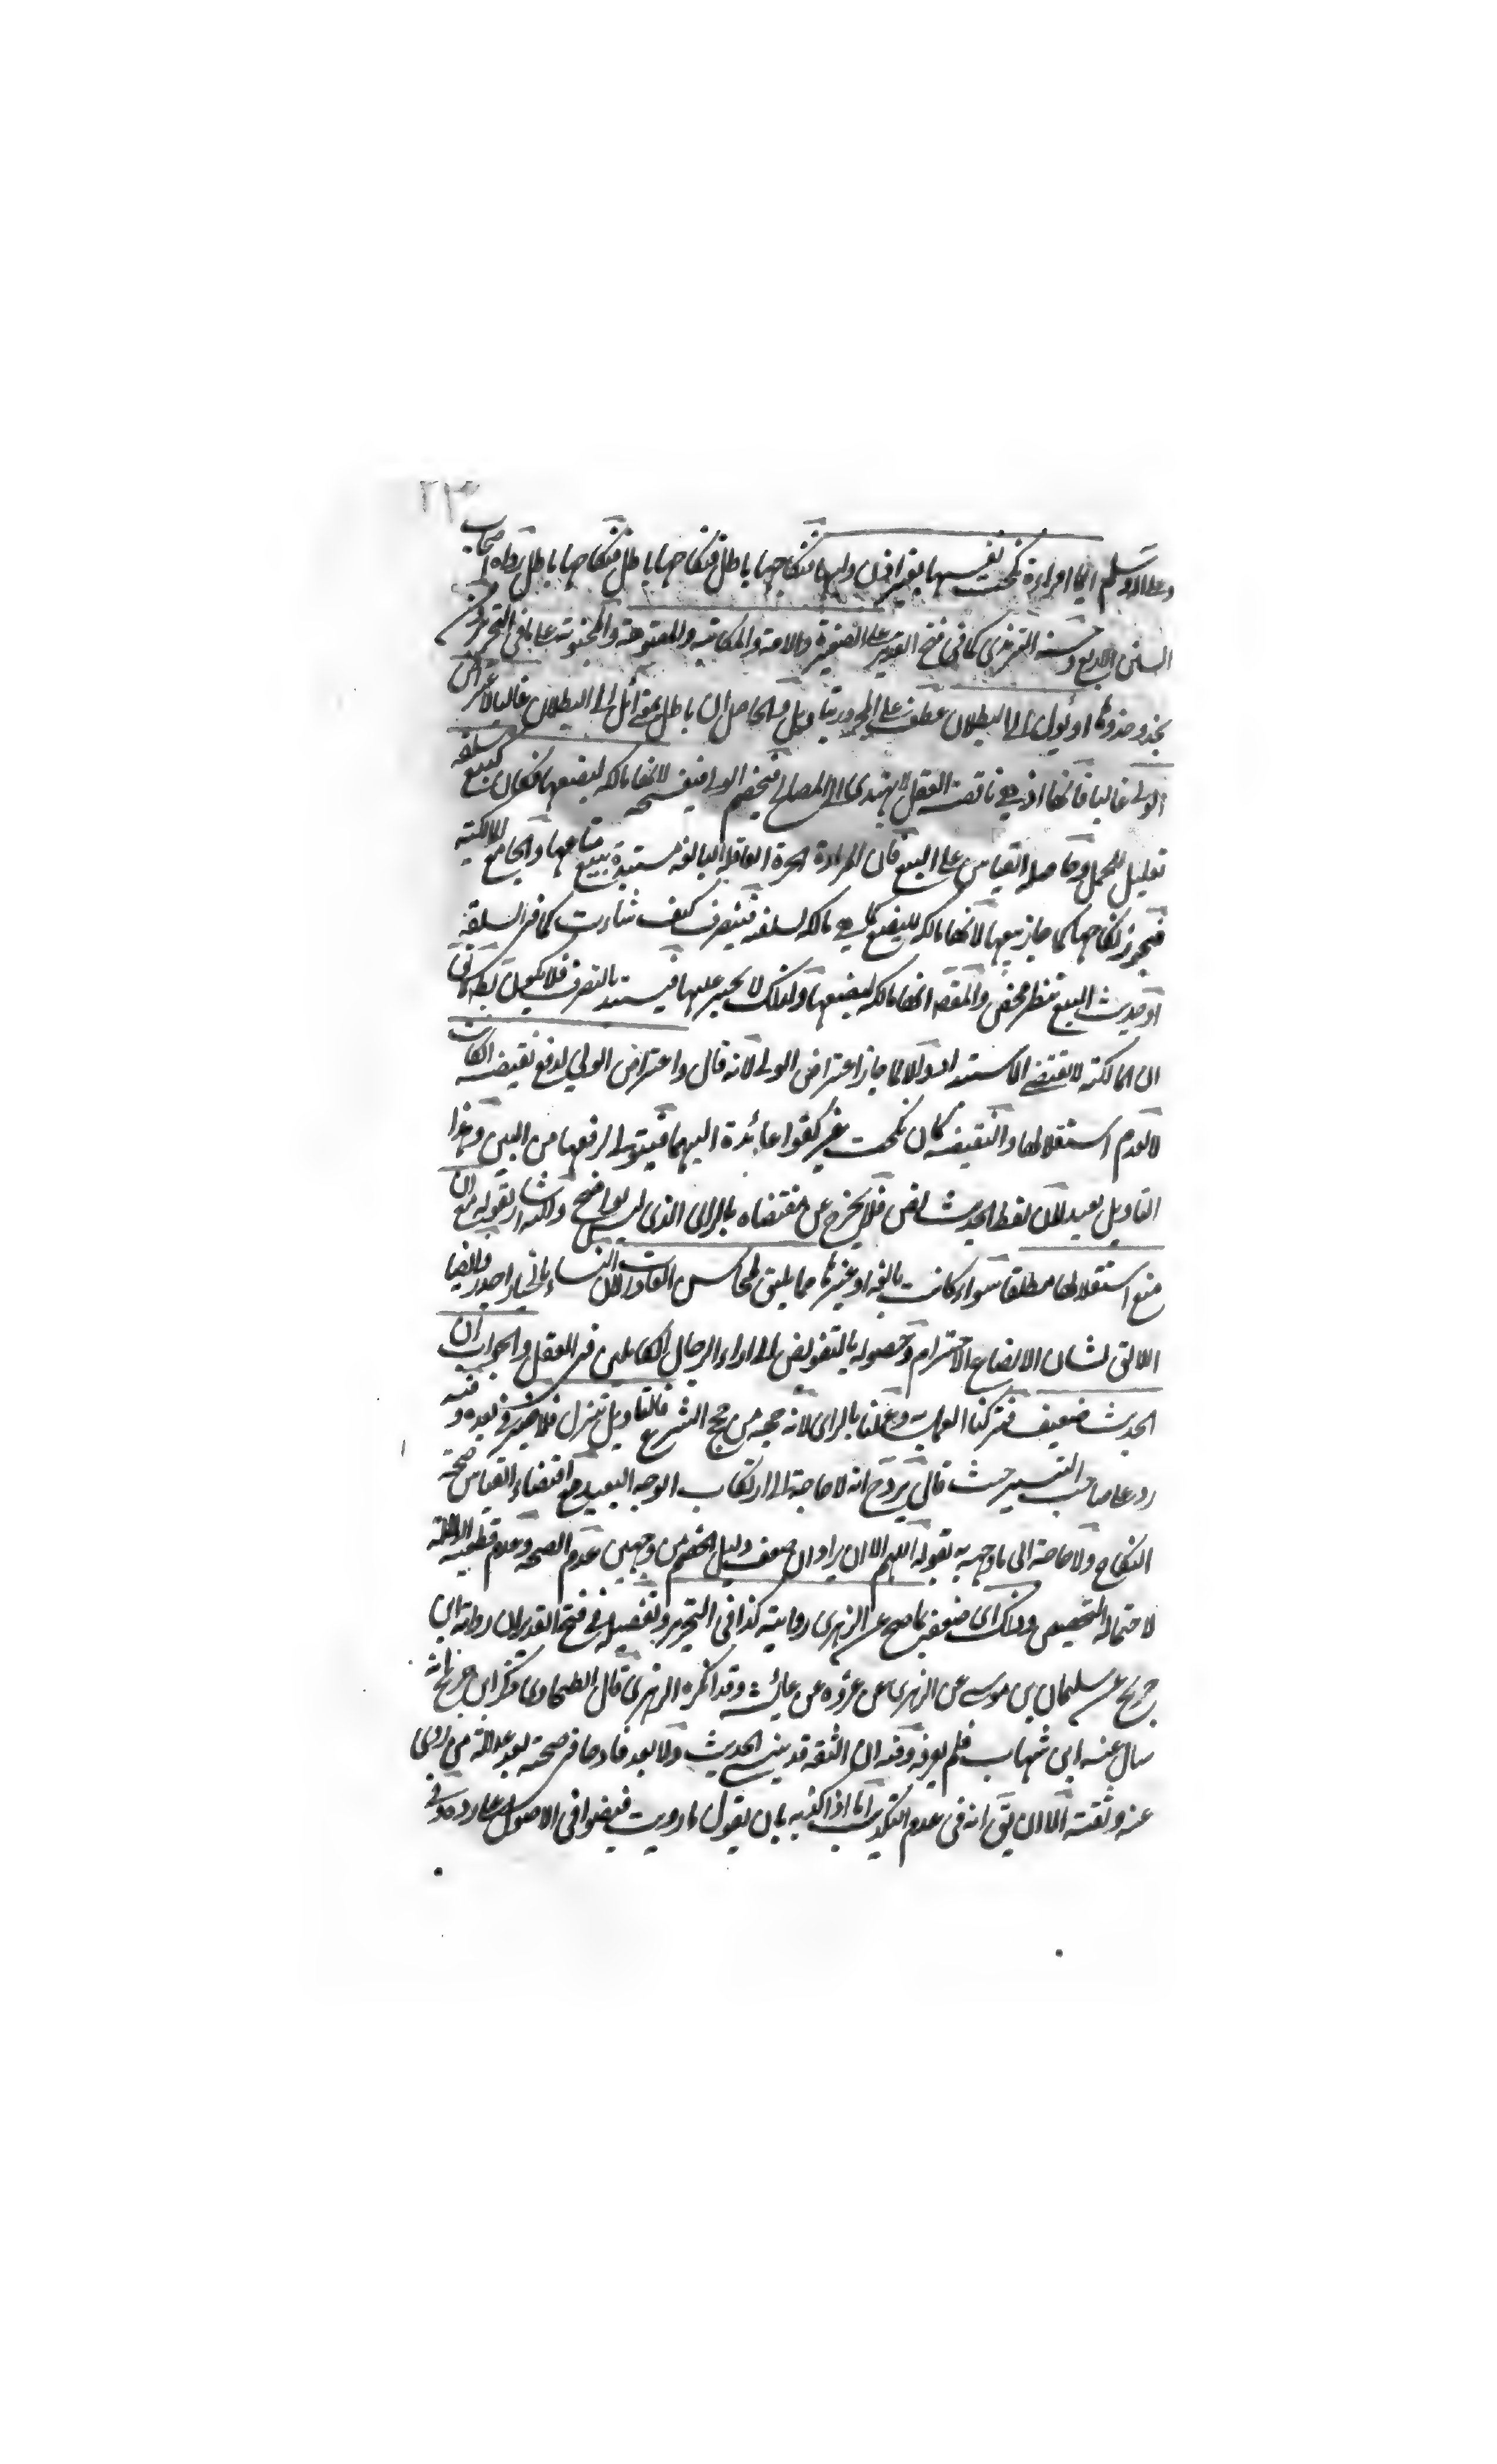 وعلى اله وسلم ايما امراءة نكحت نفسها بغير اذن وليها فنكاحها باطل فنكاحها باطل فنكاحها باطل رواه اصحاب
السنن الاربع وحسنه الترمذي كما في فتح القدير على الصغيرة والامة والمكاتبة والمعتوهة والمجنونة على ما في التحرير
او يؤل الى البطلان عطف على المجرور بتاويل والحاصل ان باطل بمعنى ائل الى البطلان غالبا لاعتراض
الولي غالبا فانها اذ هي ناقصة العقل لا يهتدي الى المصالح فيخصم الولي فيفسخه لانها مالكه لبضعها فكان كبيع سلعة
تعليل للحمل وحاصله القياس على البيع فان المراءة الحرة العاقلة البالغه مستبدة ببيع متاعها والجامع المالكية
فيجوز نكاحها كما جاز بيعها لانها مالكه للبضع كما هي مالكه لسلعه فيتصرف كيف شاءت كما في السلعة
او حديث البيع تنظير محض والمقصـ انها مالكه لبضعها ولذلك لا يجبر عليها فيستبد بالتصرف فلا
ان المالكية لا يقتضي الاستبداد والا لما جاز اعتراض الولي لانه قال واعتراض الولي لدفع نقيضه ان كانت
لا لعدم استقلالها والنقيضه كان نكحت بغير كفو عائدة اليهما فيتوسل لرفعها من البين وهذا
التاويل بعيد لان لفظ الحديث نص فلا يخرج عن مقتضاه بالراى الذي ليس بواضح ولكنه اشار بقوله مع ان
منع استقلالها مطلقا سواء كانت بالغه او غيرها مما يليق بمحاسن العادات لان النساء
اللائق لشان الابضاع الاحترام وحصوله بالتفويض الى اراء الرجال الكاملين في العقل والجواب ان
الحديث ضعيف فتركنا العمل به وعملنا بالراى لانه حجة من حجج الشرع فالتاويل تنزل فلا ضير في بعده وفيه
رد على صاحب التيسير حيث قال يرد ح انه لا حاجة الى ارتكاب الوجه البعيد مع اقتضاء القياس صحة
النكاح ولا حاجة الى ما وجه به بقوله اللهم الا ان يراد ان ضعف دليل الخصم من وجهين عدم الصحه وعدم قطعية الدلالة
لاحتماله التخصيص وذلك اى ضعفه لما صح عن الزهري روايته كذا في التحرير وتفصيله في فتح القدير ان رواية ابن
جريج عن سليمان بن موسى عن الزهري عن عروه عن عائشة وقد انكره الزهري قال الطحاوي ذكر ابن جريج انه
سال عنه ابن شهاب فلم يعرفه وفيه ان الثقة قد ينسى الحديث ولا يعد قادحا في صحته بعد عدالة من روى
عنه وثقته الا ان يق انه في عدم التكذيب اما اذا كذبه بان يقول ما رويت فيضوا في الاصول على رده